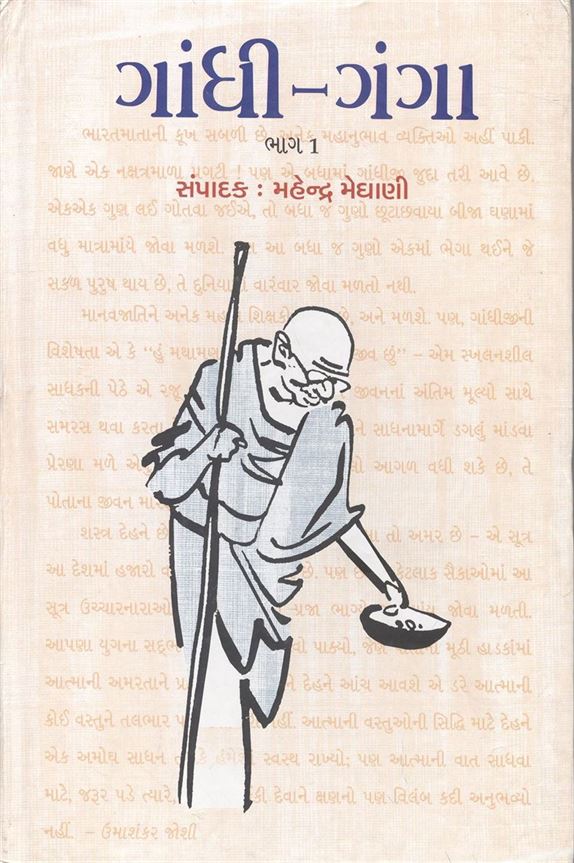 ગાંધી-ગંગા
ભાગ 1
સંપાદક : મહેન્દ્ર મેઘાણી
ભારતમાતાની કૂખ સબળી છે. અનેક મહાનુભાવ વ્યક્તિઓ અહીં પાકી.
જાણે એક નક્ષત્રમાળા પ્રગટી ! પણ એ બધામાં ગાંધીજી જુદા તરી આવે છે.
એકએક ગુણ લઈ ગોતવા જઈએ, તો બધા જ ગુણો છૂટાછવાયા બીજા ઘણામાં
વધુ માત્રામાંયે જોવા મળશે. આ બધા જ ગુણો એકમાં ભેગા થઈને જે
સકળ પુરુષ થાય છે, તે વારંવાર જોવા મળતો નથી.
માનવજાતિને અનેક શિક્ષકો છે, અને મળશે. પણ, ગાંધીજીની
વિશેષતા એ કે “હું છું” – એમ સ્ખલનશીલ
સાધકની પેઠે એ જીવનનાં અંતિમ મૂલ્યો સાથે
સમરસ થવા કરતા સાધનામાર્ગે ડગલું માંડવા
પ્રેરણા મળે આગળ વધી શકે છે, તે
પોતાના જીવન
શસ્ત્ર દેહને તો અમર છે – એ સૂત્ર
આ દેશમાં હજારો છે. પણ કેટલાક સૈકાઓમાં આ
સૂત્ર ઉચ્ચારનારાઓ જોવા મળતી.
આપણા યુગના પાક્યો, જેણે મૂઠી હાડકાંમાં
આત્માની અમરતાને દેહને આંચ આવશે એ ડરે આત્માની
કોઈ વસ્તુને તલભાર નહીં. આત્માની વસ્તુઓની સિદ્ધિ માટે દેહને
એક અમોઘ સાધન સ્વસ્થ રાખ્યો; પણ આત્માની વાત સાધવા
માટે, જરૂર પડે ત્યારે, દેવાને ક્ષણનો પણ વિલંબ કદી અનુભવ્યો
નહીં. – ઉમાશંકર જોશી